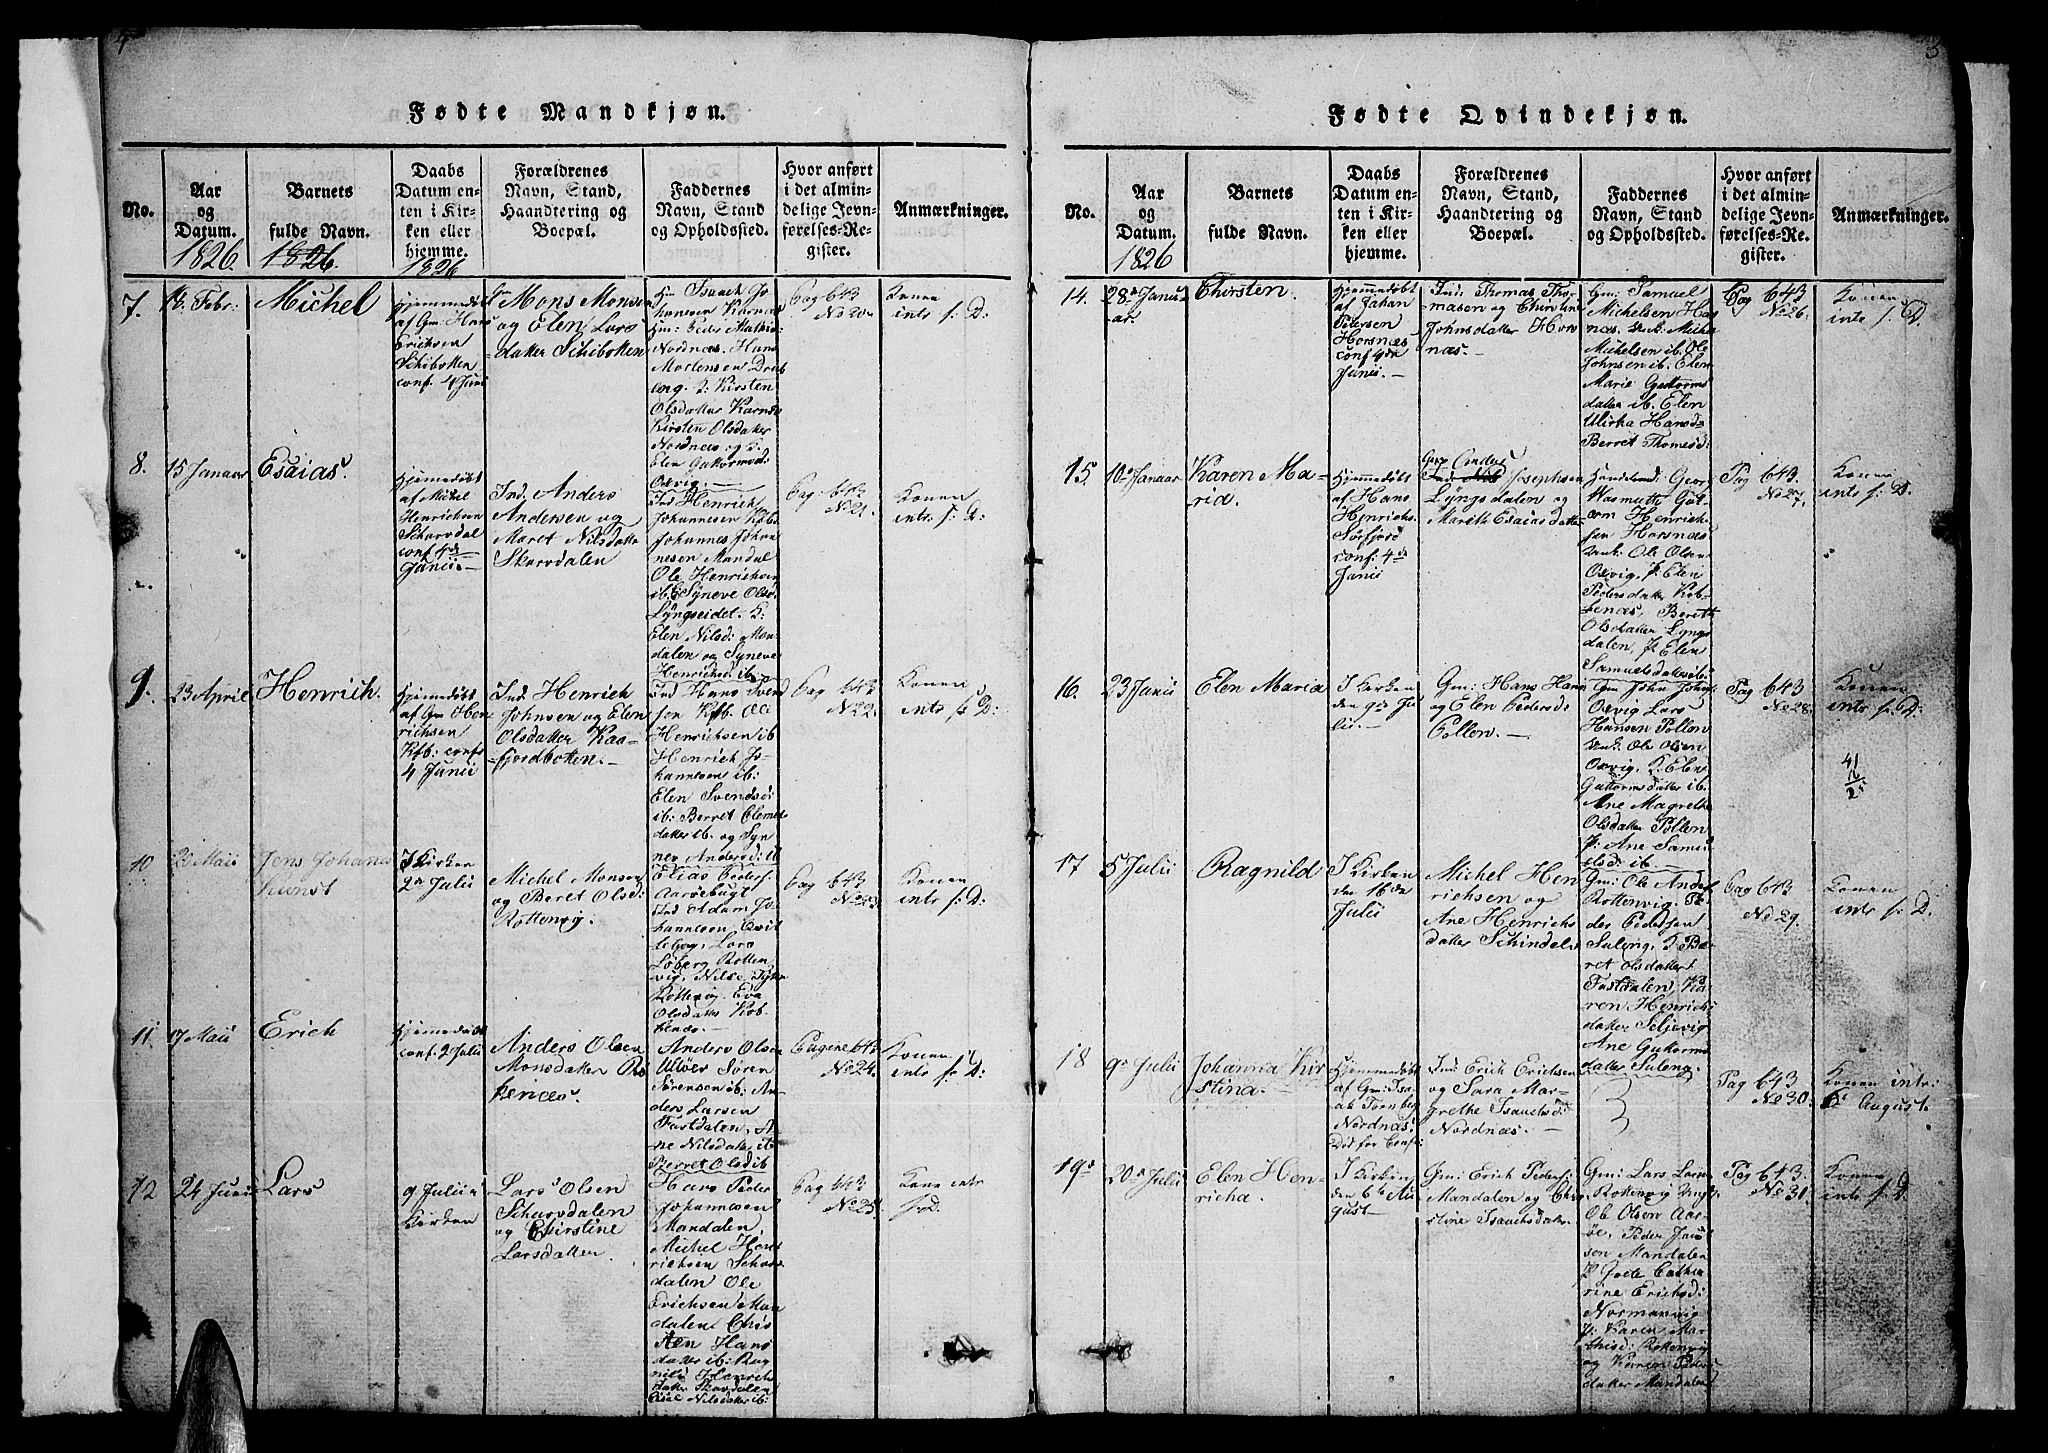 3
Fødte Mandkjøn.
No.
Aar
og
Datum.
1826.
Barnets
fulde Navn.
1826.
Daabs
Datum en-
ten i Kir-
ken eller
hjemme.
1826
Forældrenes
Navn, Stand,
Haandtering og
Boepæl.
Faddernes
Navn, Stand
og Opholdssted.
Hvor anført
i det almin-
delige Jevn-
førelses-Re-
gister.
Anmærkninger.
7.
Febr:
Michel
Hjemmedøbt
af Gm: Hans
Ericksen
Schibotten
conf. 4 Junii
Mons Mons
og Elen Lars
datter Schibotten
Isaach Jo
hannesen Karnes
Gm: Peder Mathis
Nordnæs. Hans
Mortensen
Kirsten
Olsdatter Karnes
Kirsten Olsdatter
Nordnæs og
Elen Guttormsd:
Oxvig.
Pag 643
No 20
Konen
intr f: D:
8.
15 Januar
Esaias.
Hjemmedøbt
af Michel
Henrichsen
Scharvdal
conf 4de
Junii.
Ind. Anders
Andersen og
Maret Nilsdatter
Skarvdalen
Ind Henrich
Johannesen Kfb.
Johannes Johan
nesen Mandal
Ole Henrichsen
ib: Syneve Olsd
Lyngseidet. K:
Elen Nilsd: Man
dalen og Syneve
Henrichsd ib.
Pag 643
No 21.
Konen
intr f: D:
9.
23 April
Henrich.
Hjemmedøbt
af Gm Hen
richsen
Kfb: conf
4 Junii
Ind. Henrich
Johnsen og Elen
Olsdatter Kaa-
fjordbotten.
Ind Hans Svend
sen Kfb. Ole
Henrichsen ib
Henrich Jo
hannesen ib:
Elen Svendsd:
ib: Berret Clemet
datter ib. og Syn
nev Andersd: ib
Pag 643
No 22.
Konen
intr f: D:
10
Maii
Jens Johanes
I Kirken
2den Julii
Michel Monsen
og Beret Olsd:
Rottenvig.
Elias Peders:
Aarøebugt
Ind Adam Jo
hannesen
Lars
Løberg Rotten
vig, Nilse
Rottenvig Eva
Olsdatter Kob
benæs.
Pag 643
No 23.
Konen
intr f: D:
11.
17 Maii
Erich
Hjemmedøbt
conf 2 Julii
Anders Olsen
Monsdatter
Anders Olsen
Ulløer Søren
Sørensen ib: An
ders Larsen
Fastdalen, A
ne Nilsdatter ib
Berret Olsd ib
Pagene 643
No 24.
Konen
intr f: D:
12
24 Junii
Lars
9 Julii i
Kirken
Lars Olsen
Scharvdalen
og Chirstine
Larsdatter.
Hans Peder
Johannesen
Mandalen,
Michel Hen
richsen Schar
dalen Ole
Erichsen Man
dalen, Chis
ten Hans
datter ib: Rag
nild Henrichs
datter Skardalen
Nilsdatter ib:
Pag 643
No 25.
Kone intr
f: D.
Fødte Qvindekjøn.
No.
Aar
og
Datum.
1826
Barnets
fulde Navn.
Daabs
Datum en-
ten i Kir-
ken eller
hjemme.
Forældrenes
Navn, Stand,
Haandtering og
Boepæl.
Faddernes
Navn, Stand
og Opholdssted.
Hvor anført
i det almin-
delige Jevn-
førelses-Re-
gister.
Anmærkninger.
14.
28 Janu
ar.
Chirsten.
Hjemmedøbt
af Johan
Petersen
Horsnæs
conf 4de
Junii.
Ind: Thomas Tho
masen og Chirstin
Johnsdatter Hors
næs.
Gm: Samuel
Michelsen Hors
næs.
Michelsen ib. Ole
Johnsen ib. Elen
Marie Guttorms
datter ib. Elen
Ulrika Hansd:
Berret Thomesd:
Pag 643
No 26.
Konen
intr f: D.
15.
10 Januar
Karen Ma-
ria.
Hjemmedøbt
af Hans
Henrichs.
Sørfjord
conf: 4de
Junii
Josephsen
Lyngsdalen og
Marith Esaiasdatter
Handelsmd: Georg
Wasmutt Gut
torm Henrich
sen Horsnæs
Ole Olsen
Oxvig, Elen
Pedersdatter Kob-
benæs. Berith
Olsdatter Lyngs
dalen, Elen
Samuelsdatter ib:
Pag 643.
No 27.
Konen
intr f: D.
16.
23 Junii
Elen Maria
I Kirken
den 9de Ju-
lii.
Gm: Hans Hans
og Elen Pedersd:
Pollen.
Gm John Johns
Oxvig Lars
Hansen Pollen
Ole Olsen
Oxvig. K: Elen
Guttormsdatter ib.
Ane Magrethe
Olsdatter Pollen
P: Ane Samu
elsd: ib.
Pag 643
No 28.
Konen
intr f: D.
17
5 Julii
Ragnild
I Kirken
den 16de
Julii
Michel Hen
richsen og
Ane Henrichs
datter Schindels
Gm: Ole Anders
Rottenvig. Pe
der Pedersen
Suleng. K Be
ret Olsdatter
Fastdalen. Ka
ren Henrichs
datter Seljevig
Ane Guttorms
datter Suleng
Pag 643
No 29.
Konen
intr f: D.
18
9 Julii
Johanna Kir
stina.
Hjemmedøbt
af Gm: Isa
ak Tornberg
Nordnæs.
Død før Conf:
Ind: Erich Erichsen
og Sara Mar-
grethe Isaachsd:
Nordnæs.
Pag 643
No 30.
Konen intr:
6 August.
19
20 Julii
Elen Hen-
richa.
I Kirken
den 6te Au
gust
Gm: Erich Peders:
Mandalen og Chir
stine Isaachsdatter.
Gm: Lars Lars
Rottenvig
Ole Olsen Aar-
øe. Peder Jacob
sen Mandalen
Cathe
rine Erichsd:
Normanvig
P: Karen Mar
thisd: Rottenvig
og Karen Peders
datter Mandalen
Pag 643.
No 31.
Konen
intr f: D.